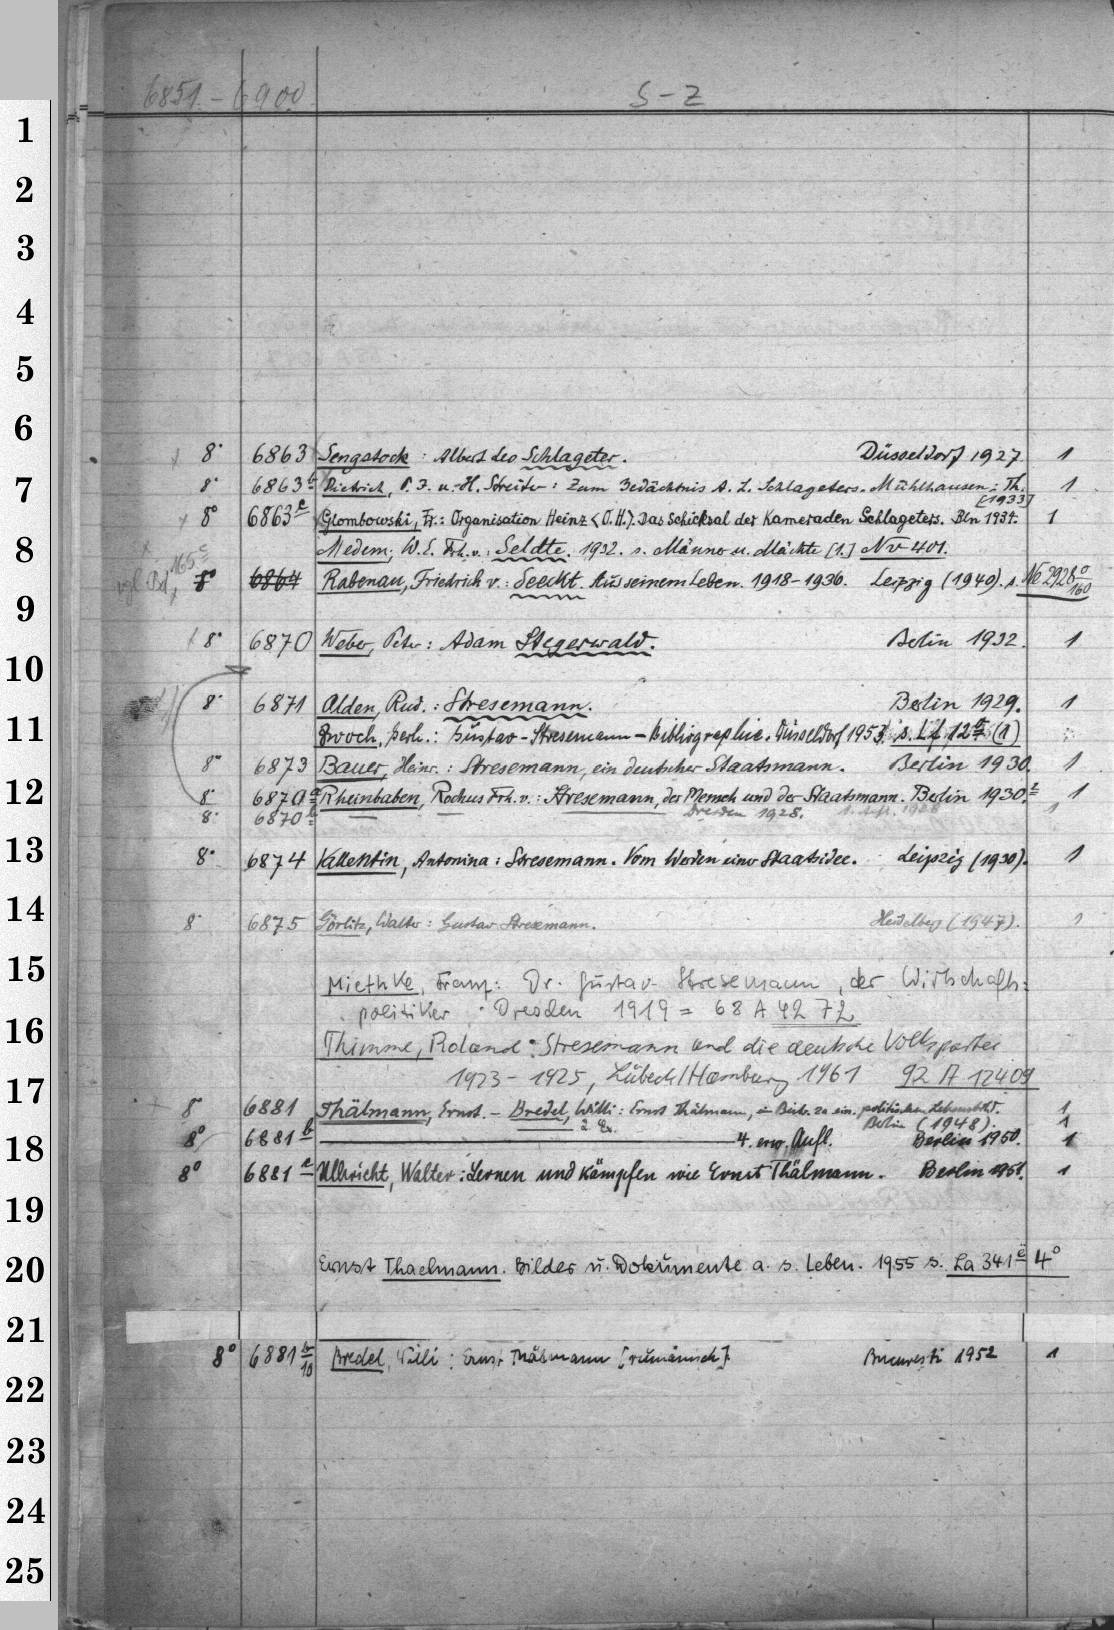 6851 - 6900 S-Z
1
2
3
4
5
6
8° 6863 Sengstock : Albert Leo Schlageter. Düsseldorf 1927 1
7 8° 6863 b Dietrich, P. J. u. H. Streiter: Zum Gedächtnis A. L. Schlageters. Mühlhausen i. Th. [1933] 1
8° 6863 c Glombowski, Fr.: Organisation Heinz <O. H.>. Das Schicksal der Kameraden Schlageters. Bln 1934. 1
8 Medem, W. E. Frh. v.: Seldte. 1932. s. Männer u. Mächte [1.] Nv 401.
8° 6864 Rabenau, Friedrich v.: Seeckt. Aus seinem Leben. 1918-1936. Leipzig (1940). s.
9
8° 6870 Weber, Peter: Adam Stegerwald. Berlin 1932. 1
10
8° 6871 Olden, Rud.: Stresemann. Berlin 1929. 1
11 Zwoch, Gerh.: Gustav-Stresemann-Bibliographie. Düsseldorf 1953. s. Lf 12 (1)
8° 6873 Bauer, Heinr.: Stresemann, ein deutscher Staatsmann. Berlin 1930. 1
12 8° 6870 a Rheinbaben, Rochus Frh. v.: Stresemann, der Mensch und der Staatsmann. Berlin 1930. 1
8° 6870 b Dresden 1928. 1
13 8° 6874 Vallentin, Antonina: Stresemann. Vom Werden einer Staatsidee. Leipzig (1930). 1
14 8° 6875 Görlitz, Walter: Gustav Stresemann. Heidelberg (1947). 1
15 Miethke, Franz: Dr. Gustav Stresemann, der Wirtschafts=
politiker. Dresden 1919 = 68 A 4272
16 Thimme, Roland: Stresemann und die deutsche Volkspartei
17 1923-1925, Lübeck/Hamburg 1961 92 A 12409
8° 6881 Thälmann, Ernst. - Bredel, Willi: Ernst Thälmann, e. Beitr. zu ein. politischen Lebensbild. 1
2 Ex. Berlin (1948). 1
18 8° 6881 b 4. erw. Aufl. Berlin 1950. 1
8° 6881 c Ulbricht, Walter: Lernen und kämpfen wie Ernst Thälmann. Berlin 1951. 1
19
20 Ernst Thaelmann. Bilder u. Dokumente a. s. Leben. 1955 s. La 341 e 4°
21
8° 6881 b/10 Bredel, Willi: Ernst Thälmann [rumänisch] Bucuresti 1952 1
22
23
24
25